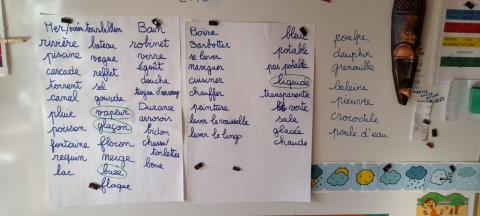 Mer/océan tourbillon
rivière
piscine
cascade
torrent
canal
pluie
poisson
fontaine
requin
lac
bateau
vague
reflet
sel
gourde
vapeur
glaçon
flocon
neige
buée
flaque
Bain
robinet
verre
égout
douche
tuyau d'arrosage
Durance
arrosoir
bidon
chasse/
toilettes
boue
Boire
Barbotter
se laver
naviguer
cuisiner
chauffer
peinture
laver la vaisselle
laver le linge
bleu
potable
pas potable
liquide
transparente
verte
sale
glacée
chaude
poulpe
dauphin
grenouille
baleine
pieuvre
crocodile
poule d'eau